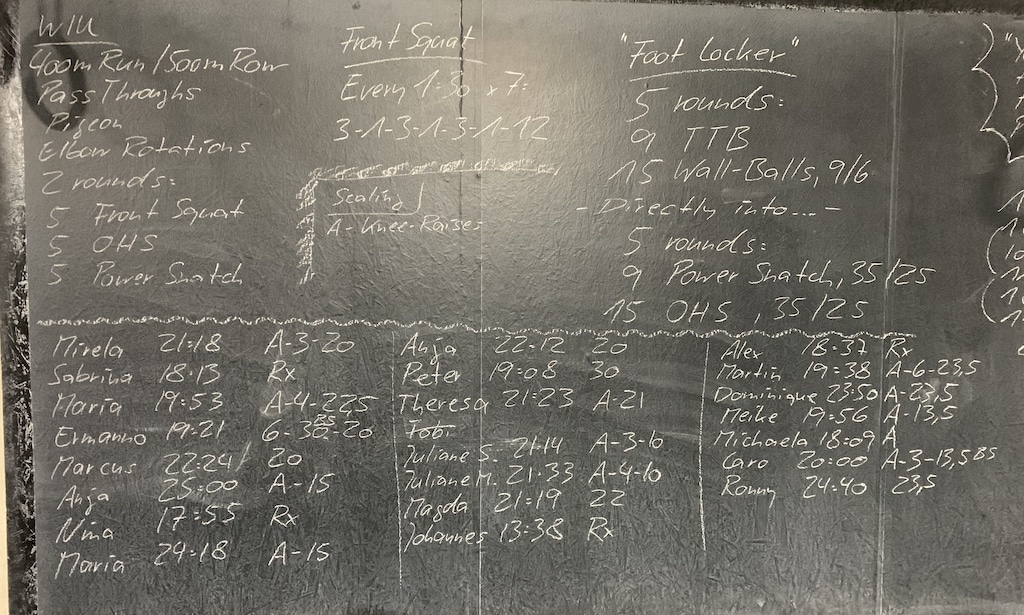 WIU
400m Run / 500m Row
Pass Throughs
Pigeon
Elbow Rotations
2 rounds:
5 Front Squat
5 OHS
5 Power Snatch
Front Squat
Every 1:30 x 7:
3-1-3-1-3-1-12
Scaling
A-Knee-Raises
"Foot Locker"
5 rounds:
9 TTB
15 Wall-Balls, 9/6
- Directly into... -
5 rounds:
9 Power Snatch, 35/25
15 OHS, 35/25
Mirela 21:18 A-3-20
Sabrina 18:13 Rx
Maria 19:53 A-4-22,5
Ermanno 19:21 6-30-20
Marcus 22:24 20
Anja 25:00 A-15
Nina 17:55 Rx
Maria 24:18 A-15
Anja 22:12 20
Peter 19:08 30
Theresa 21:23 A-21
Fobi
Juliane S. 21:14 A-3-10
Juliane M. 21:33 A-4-10
Magda 21:19 22
Johannes 13:38 Rx
Alex 18:37 Rx
Martin 19:38 A-6-23,5
Dominique 23:50 A-23,5
Meike 19:56 A-13,5
Michaela 18:09 A
Caro 20:00 A-3-13,5 BS
Ronny 24:40 23,5